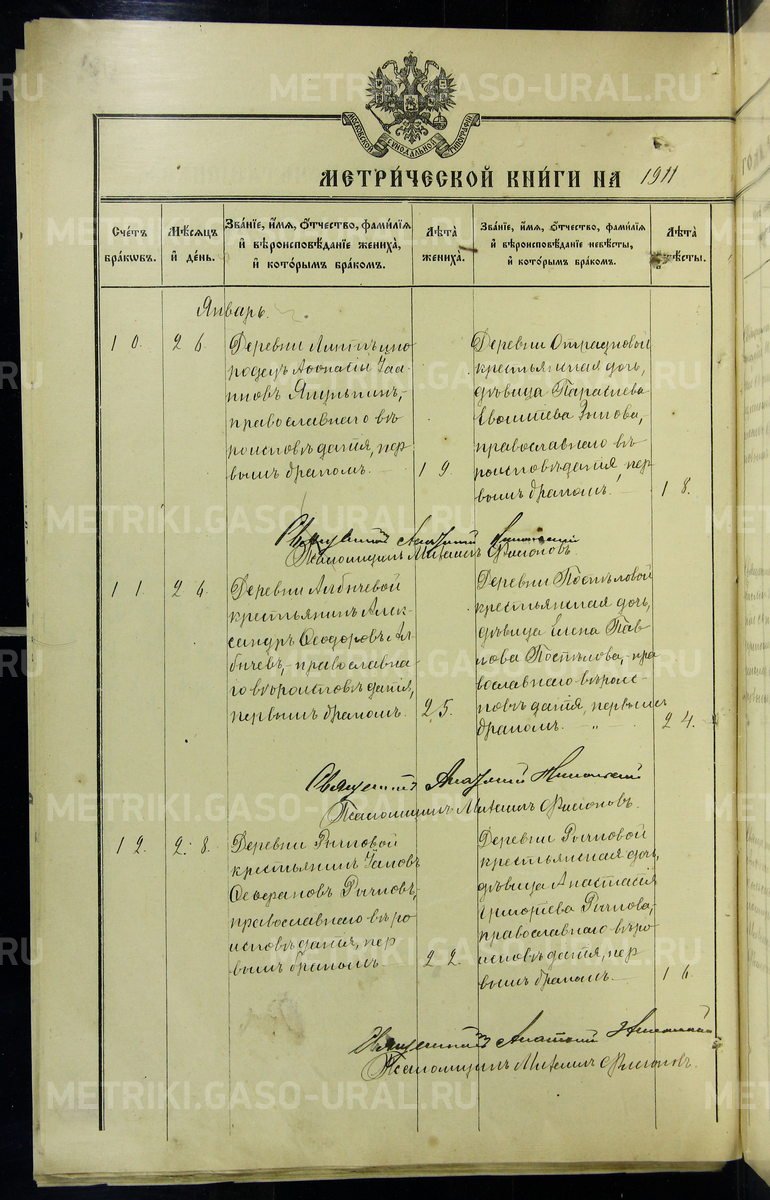 METRIKI.GASO-URAL.RU
МОСКОВСКОЙ СѴНОДАЛЬНОЙ ТИПОГРАФІИ
МЕТРИ́ЧЕСКОЙ КНИ́ГИ НА 1911
Сче́тъ бра́кѡвъ.
Мѣ́сяцъ и҆ де́нь.
Зва́нїе, и҆́мѧ, ѻ҆́тчество, фами́лїѧ и҆ вѣроисповѣ́данїе жениха̀, и҆ кото́рымъ бра́комъ.
Лѣ́та жениха̀.
Зва́нїе, и҆́мѧ, ѻ҆́тчество, фами́лїѧ и҆ вѣроисповѣ́данїе невѣ́сты, и҆ кото́рымъ бра́комъ.
Лѣ́та
Январь.
10.
26.
Деревни
родецъ Аѳонасій Іаа-
ковъ
православнаго вѣ
роисповѣданія, пер
вымъ бракомъ.
19.
Деревни Отрадновой
крестьянская дочь,
дѣвица Параскева
Зыкова,
православнаго вѣ
роисповѣданія пер
вымъ бракомъ.
18.
Священникъ Анатолій
Псаломщикъ Михаилъ Филоновъ.
11.
26.
Деревни Албычевой
крестьянинъ Алек-
сандръ Ѳеодоровъ Ал
бычевъ, православна
го вѣроисповѣданія,
первымъ бракомъ.
25.
Деревни Постыловой
крестьянская дочь,
дѣвица Елена Пав
лова Постылова, пра
вославнаго вѣроис-
повѣданія, первымъ
бракомъ. — „ —
24.
Священникъ Анатолій Никольскій
Псаломщикъ Михаилъ Филоновъ.
12.
28.
Деревни Рычковой
крестьянинъ Іаковъ
Рычковъ,
православнаго вѣро
исповѣданія, пер
вымъ бракомъ
22.
Деревни Рычковой
крестьянская дочь,
дѣвица Анастасія
Григоріева Рычкова,
православнаго вѣро
исповѣданія, пер
вымъ бракомъ.
16.
Священникъ Анатолій Никольскій
Псаломщикъ Михаилъ Филоновъ.